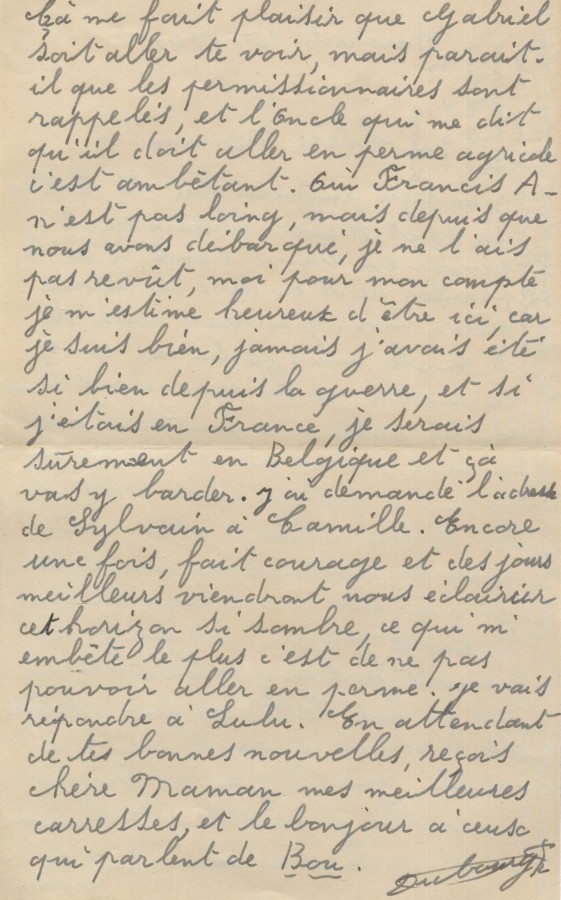 Çà me fait plaisir que Gabriel
soit aller te voir, mais parait-
il que les permissionnaires sont
rappelés, et l'Oncle qui me dit
qu'il doit aller en perme agricole
c'est ambêtant. Oui Francis A-
n'est pas loing, mais depuis que
nous avons débarqué, je ne l'ais
pas revût, moi pour mon compte
je m'estime heureux d'être ici, car
je suis bien, jamais j'avais été
si bien depuis la guerre, et si
j'étais en France, je serais
sûrement en Belgique et çà
vas y barder. J'ai demandé l'adresse
de Sylvain à Camille. Encore
une fois, fait courage et des jours
meilleurs viendront nous éclaircir
cet horizon si sombre, ce qui m'
embête le plus c'est de ne pas
pouvoir aller en perme. Je vais
répondre à Lulu. En attendant
de tes bonnes nouvelles, reçois
chère Maman mes meilleures
carresses, et le bonjour à ceux
qui parlent de Bou.